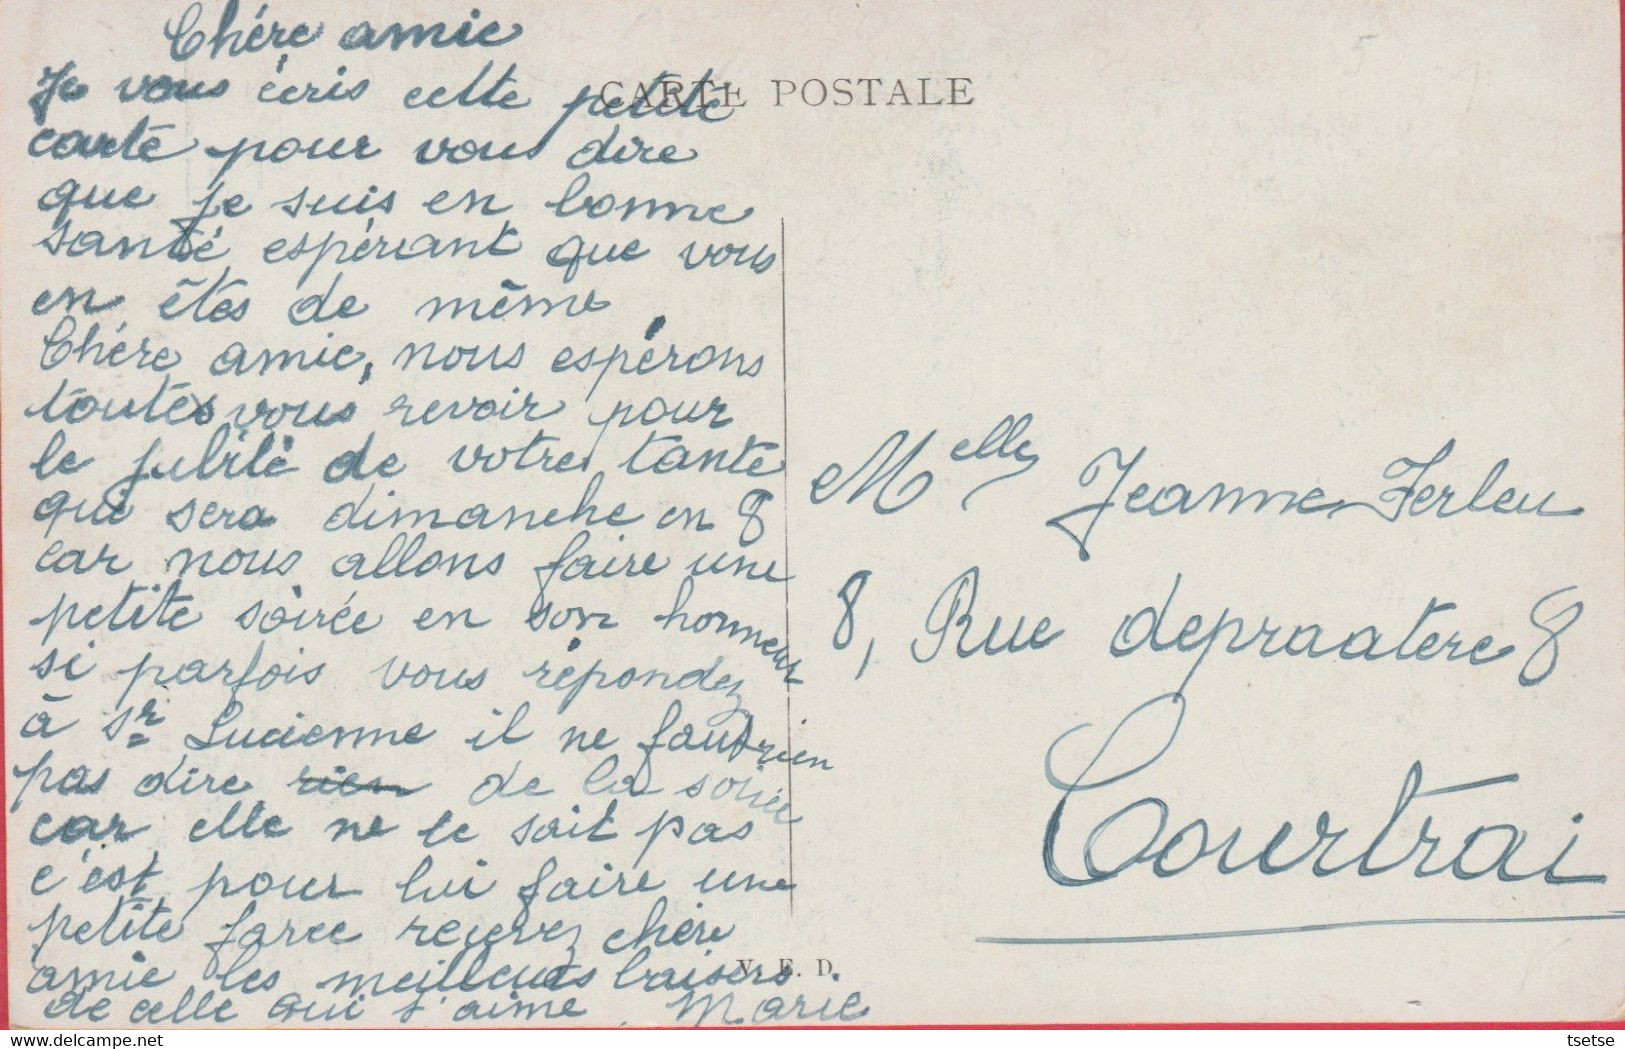 Chére amie
CARTE POSTALE
Je vous écris cette petite
carte pour vous dire
que je suis en bonne
santé espérant que vous
en êtes de même
Chére amie, nous espérons
toutes vous revoir pour
le jubilé de votre tante
qui sera dimanche en 8
car nous allons faire une
petite soirée en son honneur
si parfois vous répondez
à Sr Lucienne il ne faut rien
pas dire rien de la soirée
car elle ne le sait pas
c'est pour lui faire une
petite farce recevez chére
amie les meilleurs baisers.
de celle qui t'aime Marie
V. E. D.
Melle Jeanne Ferleu
8, Rue depraatere 8
Courtrai
tsetse